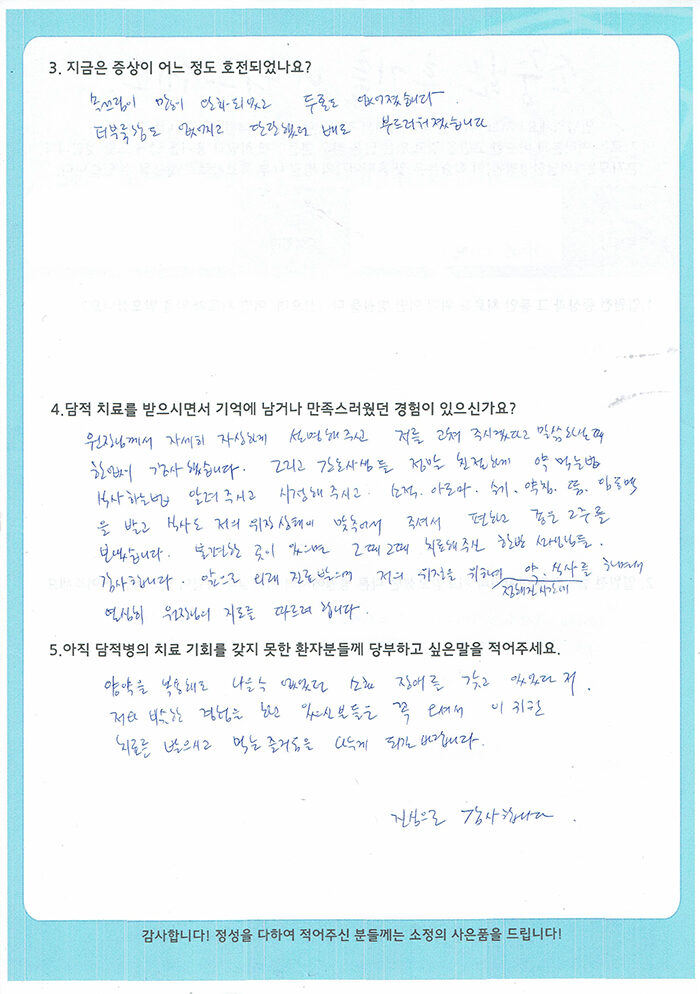 3. 지금은 증상이 어느 정도 호전되었나요?
속쓰림이 많이 완화되었고 두통도 없어졌습니다.
더부룩함도 없어지고 단단했던 배도 부드러워졌습니다
4.담적 치료를 받으시면서 기억에 남거나 만족스러웠던 경험이 있으신가요?
원장님께서 자세히 자상하게 설명해주신 저를 고쳐 주시겠다고 말씀하실때
한없이 감사했습니다. 그리고 간호사샘들 정말 친절하게 약 먹는법
식사하는법 알려주시고 시정해주시고. 소적. 아로마. 수기. 약침. 뜸.
을 받고 식사도 저의 위장상태에 맞춰서 주셔서 편하고 좋은 2주를
보냈습니다. 불편한 곳이 있으면 그때그때 치료해주신 한방 선생님들.
감사합니다. 앞으로 외래 진료받으며 저의 위장을 위하여 약. 식사를 하면서
정해진시간에
열심히 원장님의 치료를 따르려 합니다.
5.아직 담적병의 치료 기회를 갖지 못한 환자분들께 당부하고 싶은말을 적어주세요.
양약을 복용해도 나을수 없었던 소화 장애를 갖고 있었던 저.
저와 비슷한 경험을 하고 있으신분들은 꼭 오셔서 이 귀한
치료를 받으시고 먹는 즐거움을 아는게 되길 바랍니다.
진심으로 감사합니다.
감사합니다! 정성을 다하여 적어주신 분들께는 소정의 사은품을 드립니다!